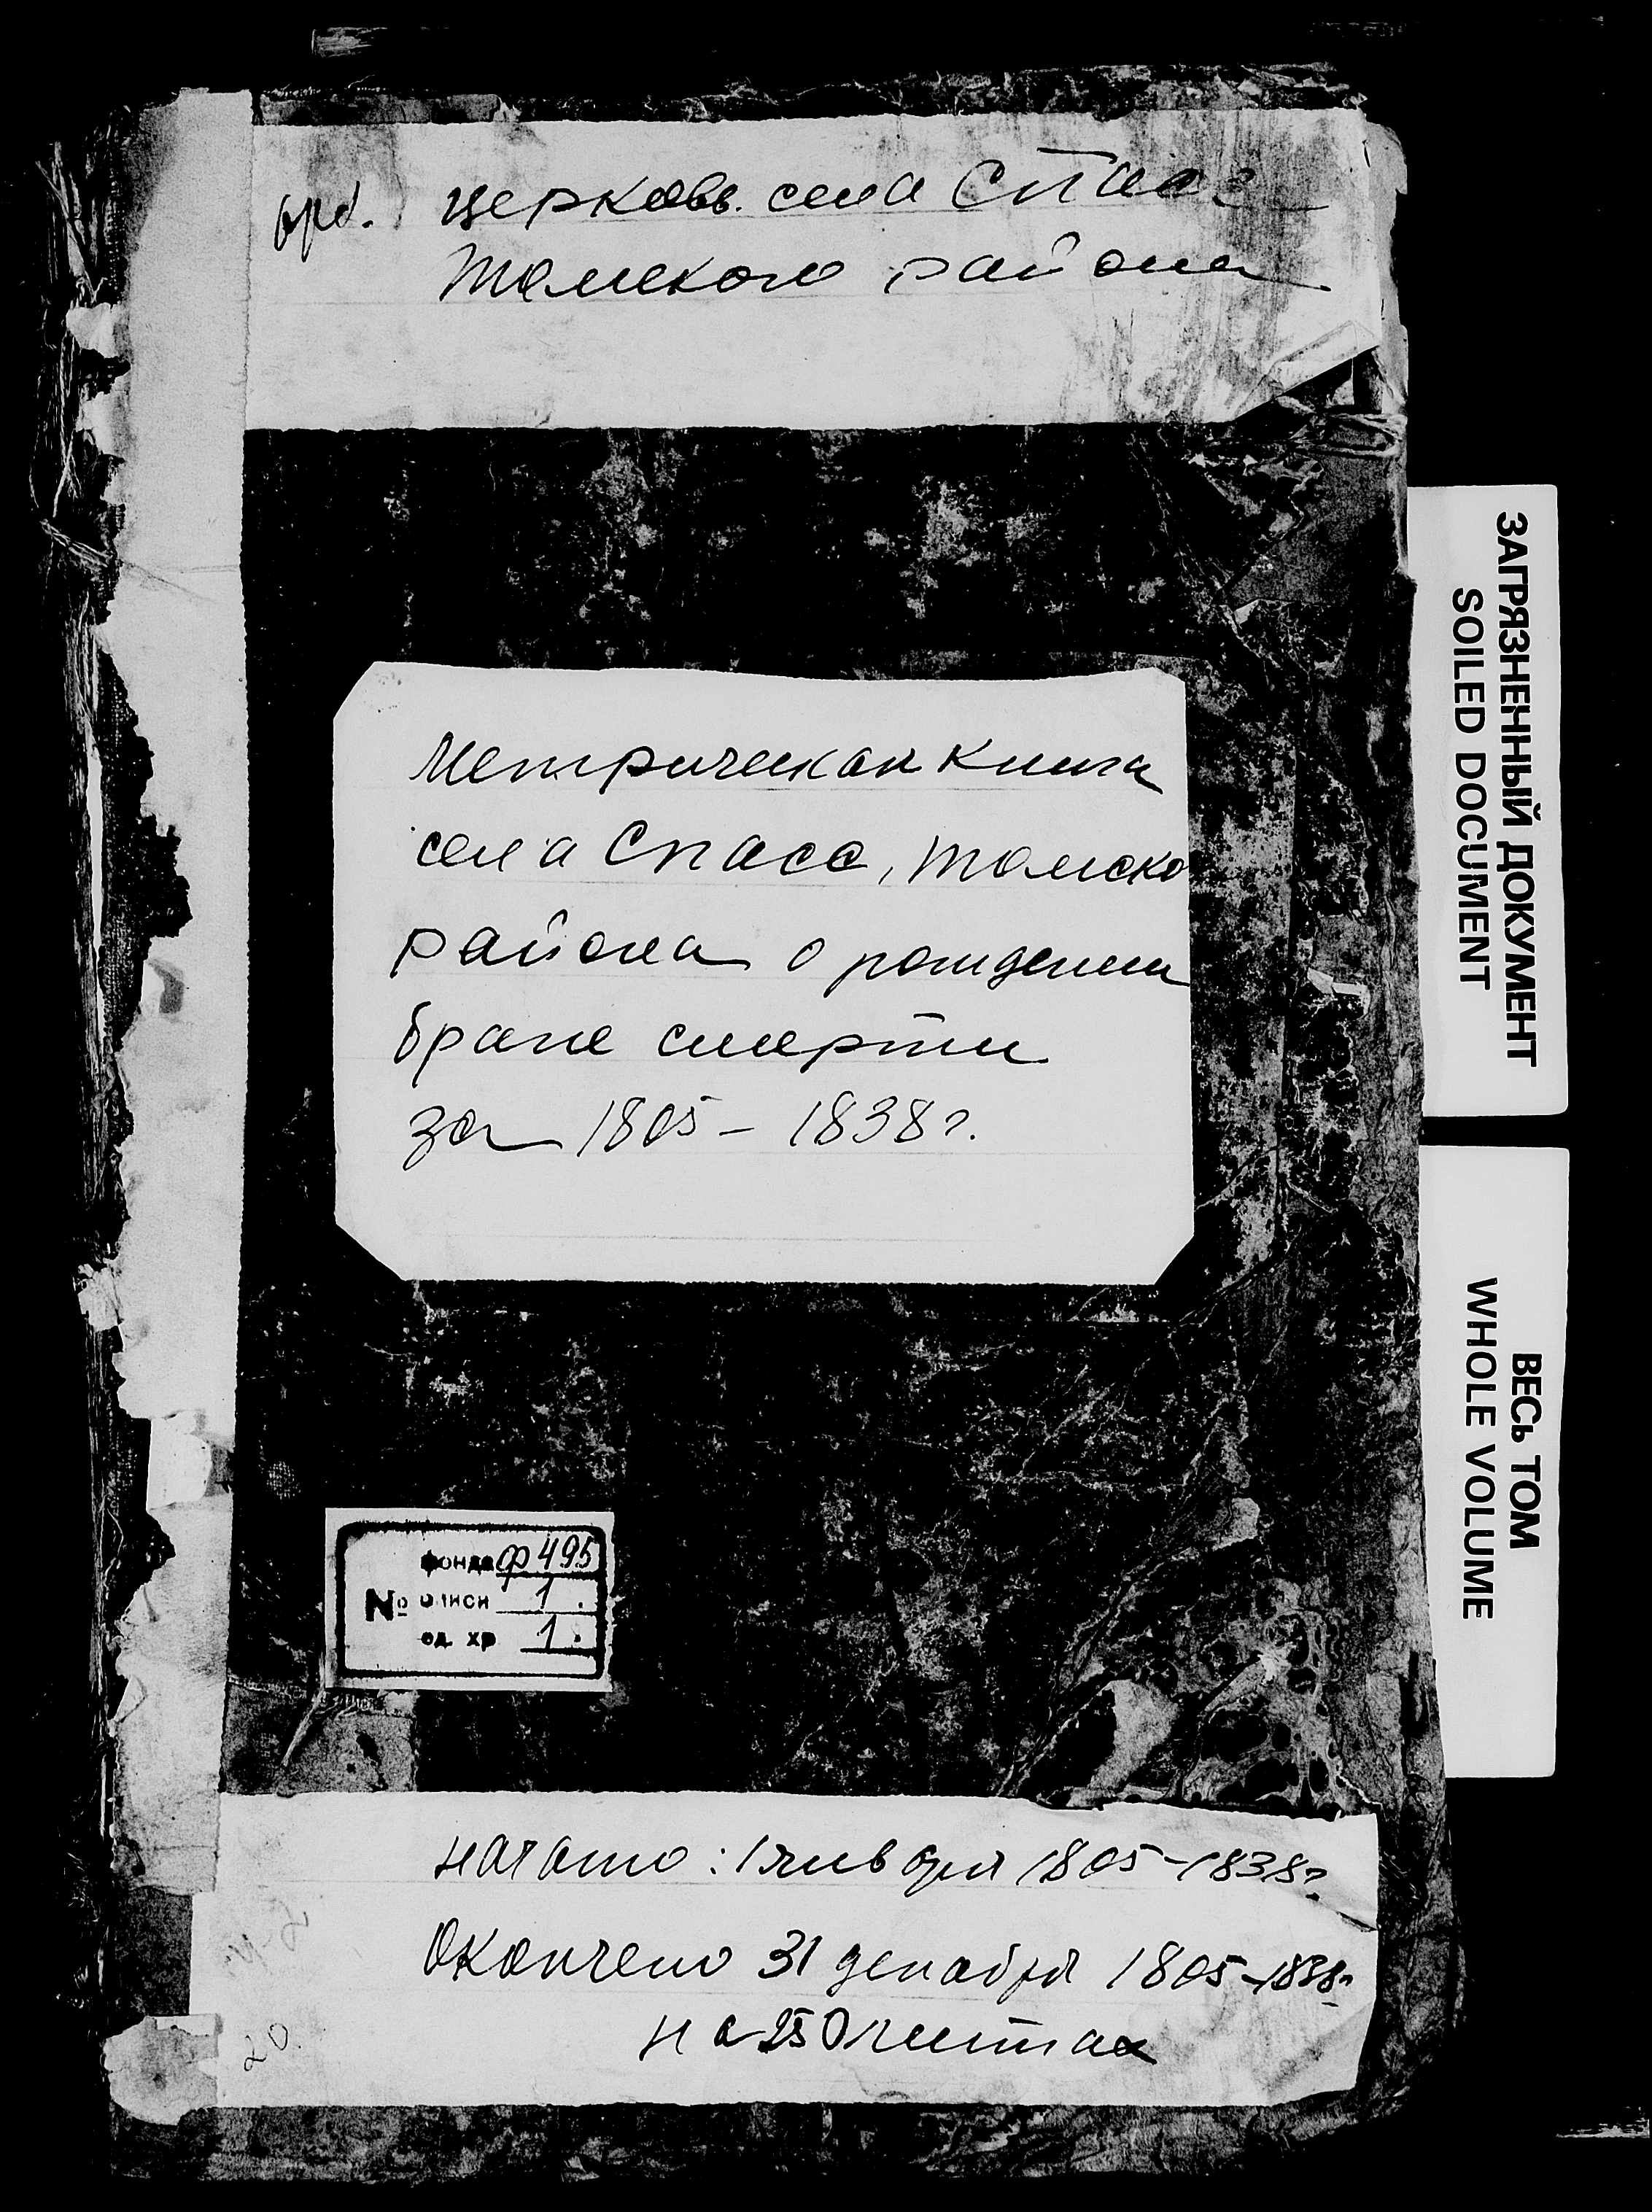 церковь села Спасс
Томского района
Метрическая книга
села Спасс, Томско
района о рождении
браке смерти
за 1805 – 1838 г.
фонда ф 495
№ описи 1.
ед. хр 1.
начато: 1 января 1805-1838 г.
Окончено 31 декабря 1805-1838 г.
на 250 листах
20.
ЗАГРЯЗНЕННЫЙ ДОКУМЕНТ
SOILED DOCUMENT
ВЕСЬ ТОМ
WHOLE VOLUME